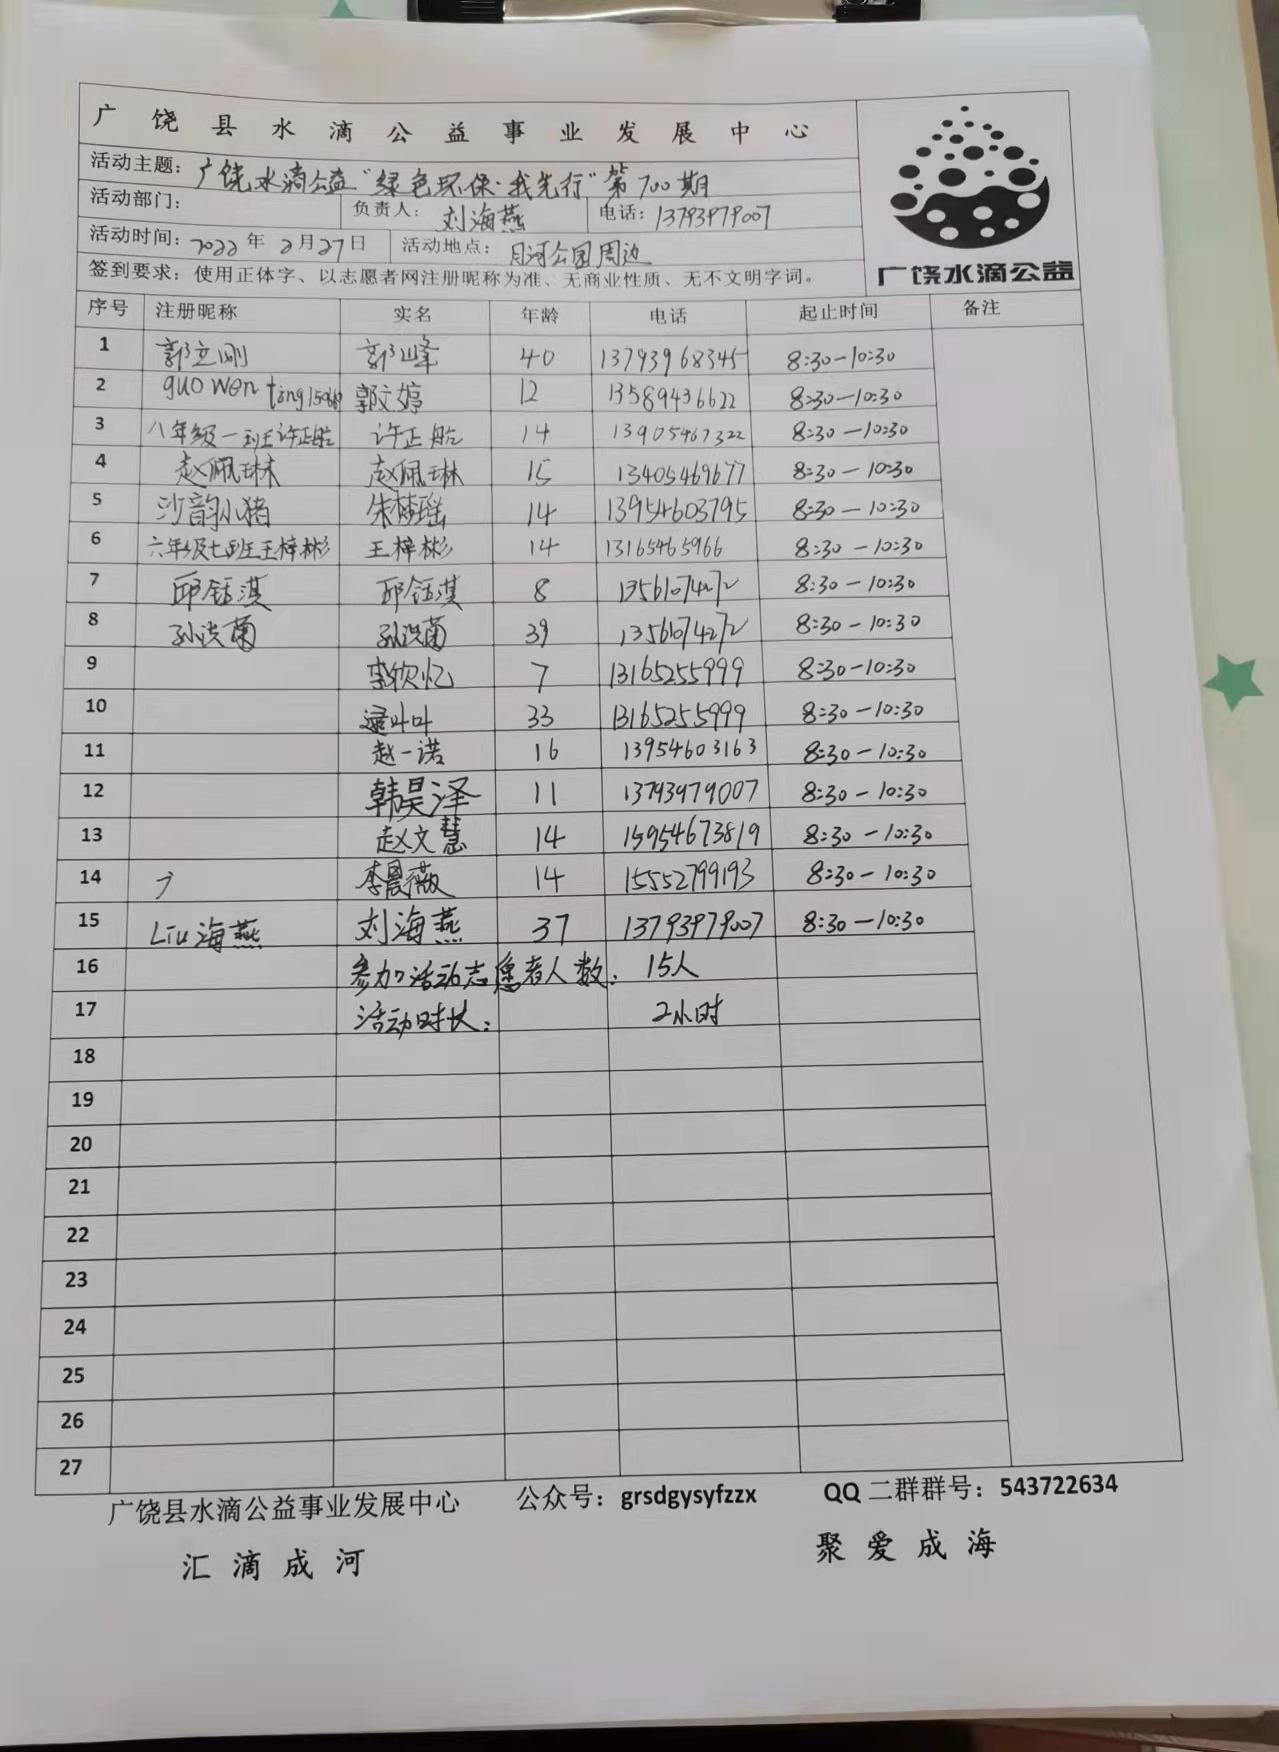 广饶县水滴公益事业发展中心
活动主题：广饶水滴公益"绿色环保·我先行"第700期
活动部门： 负责人：刘海燕 电话：13793979007
活动时间：2022年2月27日 活动地点：月河公园周边
签到要求：使用正体字、以志愿者网注册昵称为准、无商业性质、无不文明字词。
广饶水滴公益
序号 注册昵称 实名 年龄 电话 起止时间 备注
1 郭立刚 郭峰 40 13793968345 8:30-10:30
2 guo wen ting 郭文婷 12 13589436622 8:30-10:30
3 八年级一班许正航 许正航 14 13905467322 8:30-10:30
4 赵佩琳 赵佩琳 15 13405469677 8:30-10:30
5 沙韵小猪 朱梦瑶 14 13954603795 8:30-10:30
6 六年级七班王梓彬 王梓彬 14 13165465966 8:30-10:30
7 邱钰淇 邱钰淇 8 13561074272 8:30-10:30
8 孙洪菊 孙洪菊 39 13561074272 8:30-10:30
9 李钦忆 7 13165255999 8:30-10:30
10 逯叶叶 33 13165255999 8:30-10:30
11 赵一诺 16 13954603163 8:30-10:30
12 韩昊泽 11 13793979007 8:30-10:30
13 赵文慧 14 15954673819 8:30-10:30
14 李晨薇 14 15552799193 8:30-10:30
15 Liu海燕 刘海燕 37 13793979007 8:30-10:30
16 参加活动志愿者人数： 15人
17 活动时长： 2小时
18
19
20
21
22
23
24
25
26
27
广饶县水滴公益事业发展中心 公众号：grsdgysyfzzx QQ二群群号：543722634
汇滴成河 聚爱成海